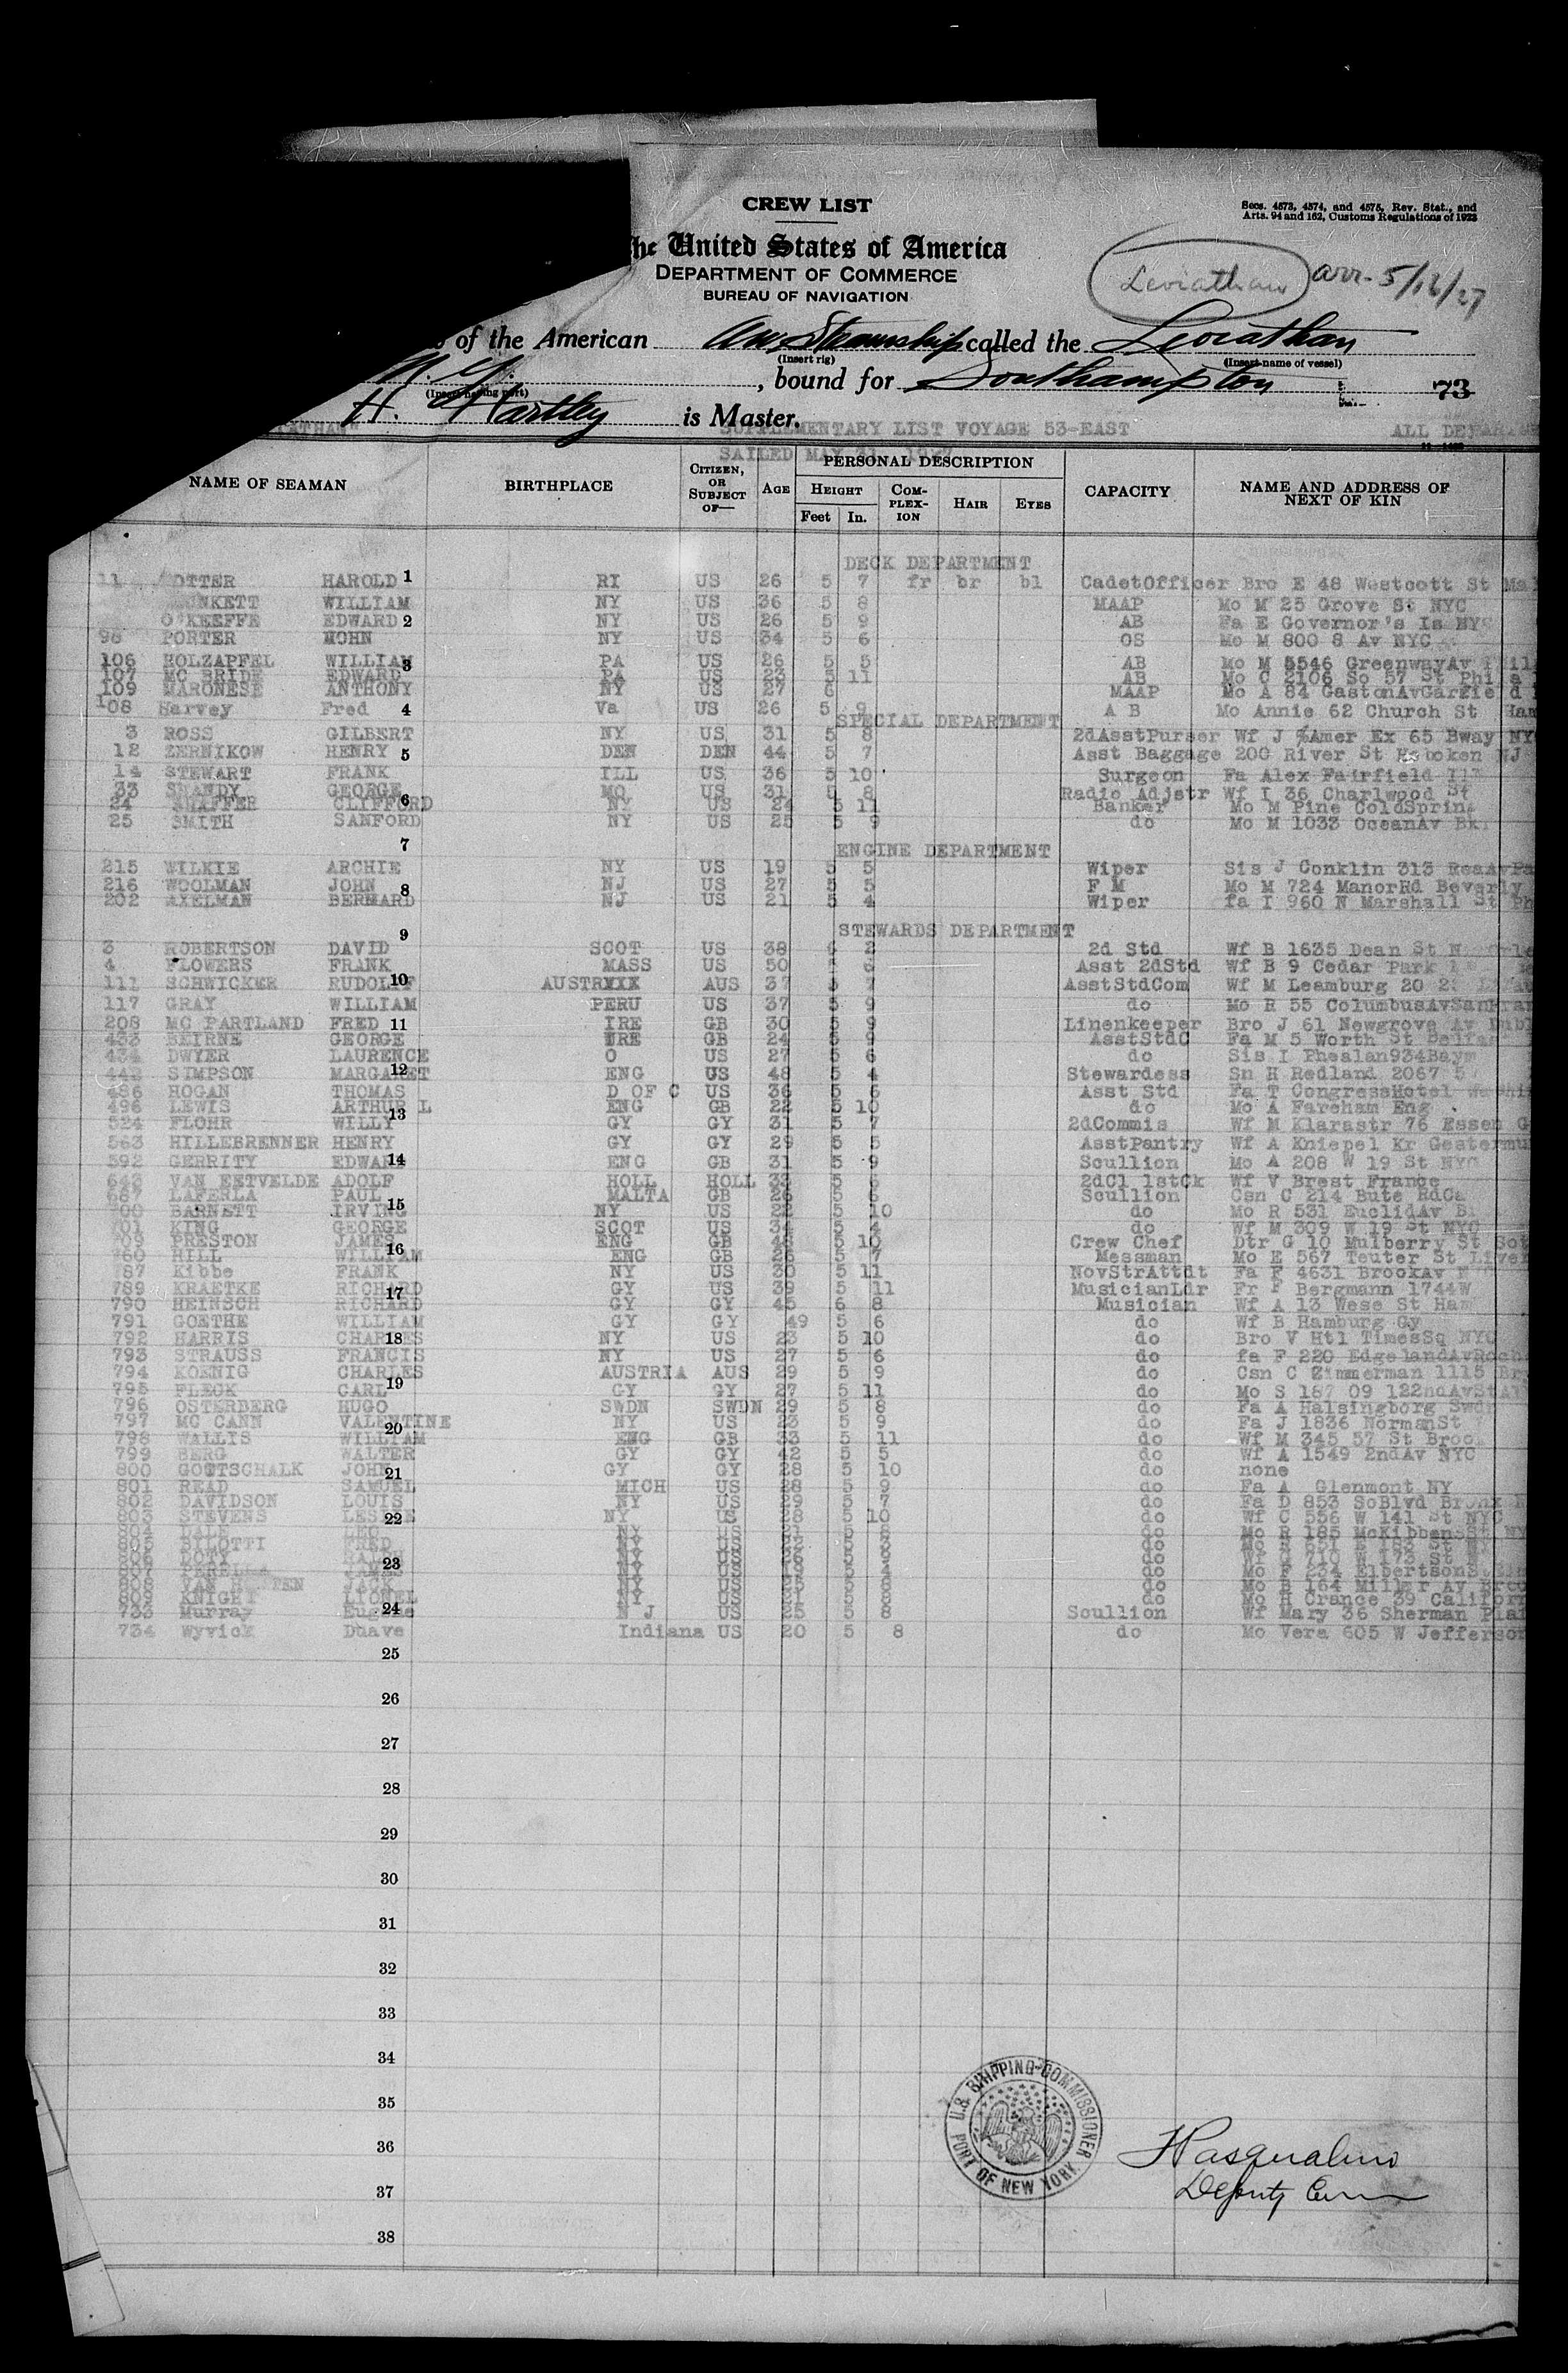 CREW LIST
Secs. 4573, 4574, and 4575, Rev. Stat., and
Arts. 94 and 162, Customs Regulations of 1923
The United States of America
DEPARTMENT OF COMMERCE
BUREAU OF NAVIGATION
Leviathan arr- 5/16/27
of the American Am Steamship called the Leviathan
(Insert rig) (Insert name of vessel)
N. Y. , bound for Southampton 73
H. Hartley is Master.
SUPPLEMENTARY LIST VOYAGE 53-EAST ALL
SAILED MAY
NAME OF SEAMAN BIRTHPLACE CITIZEN, OR SUBJECT OF— AGE PERSONAL DESCRIPTION CAPACITY NAME AND ADDRESS OF NEXT OF KIN
HEIGHT COM-PLEX-ION HAIR EYES
Feet In.
DECK DEPARTMENT
11 OTTER HAROLD 1 RI US 26 5 7 fr br bl CadetOfficer Bro E 48 Westcott St
WILLIAM NY US 36 5 8 MAAP Mo M 25 Grove St NYC
O'KEEFFE EDWARD 2 NY US 26 5 9 AB Fa E Governor's Is NY
98 PORTER MOHN NY US 34 5 6 OS Mo M 800 8 Av NYC
106 HOLZAPFEL WILLIAM 3 PA US 26 5 5 AB Mo M 5546 GreenwayAv
107 MC BRIDE EDWARD PA US 23 5 11 AB Mo C 2106 So 57 St Phila
109 MARONESE ANTHONY NY US 27 6 MAAP Mo A 84 GastonAvGarfield
108 Harvey Fred 4 Va US 26 5 9 A B Mo Annie 62 Church St Ham
SPECIAL DEPARTMENT
3 ROSS GILBERT NY US 31 5 8 2dAsstPurser Wf J %Amer Ex 65 Bway NY
12 ZERNIKOW HENRY 5 DEN DEN 44 5 7 Asst Baggage 200 River St Hoboken NJ
14 STEWART FRANK ILL US 36 5 10 Surgeon Fa Alex Fairfield Ill
33 SHANDY GEORGE MO US 31 5 8 Radio Adjstr Wf I 36 Charlwood St
24 SHAFFER CLYFFORD 6 NY US 24 5 11 Banker Mo M Pine ColdSpring
25 SMITH SANFORD NY US 25 5 9 do Mo M 1033 OceanAv Bk
7
ENGINE DEPARTMENT
215 WILKIE ARCHIE NY US 19 5 5 Wiper Sis J Conklin 313
216 WOOLMAN JOHN 8 NJ US 27 5 5 F M Mo M 724 ManorRd Beverly
202 AXELMAN BERNARD NJ US 21 5 4 Wiper fa I 960 N Marshall St Ph
9
STEWARDS DEPARTMENT
3 ROBERTSON DAVID SCOT US 38 5 2 2d Std Wf B 1635 Dean St
4 FLOWERS FRANK MASS US 50 5 6 Asst 2dStd Wf B 9 Cedar Park
111 SCHWICKER RUDOLF 10 AUSTRXXX AUS 37 5 7 AsstStdCom Wf M Leamburg 20
117 GRAY WILLIAM PERU US 37 5 9 do Mo R 55 ColumbusAvSanFran
208 MC PARTLAND FRED 11 IRE GB 30 5 9 Linenkeeper Bro J 61 Newgrove Av Dubl
433 BEIRNE GEORGE IRE GB 24 5 9 AsstStdC Fa M 5 Worth St Belfas
434 DWYER LAURENCE O US 27 5 6 do Sis I Phealan934Baym
442 SIMPSON MARGARET 12 ENG US 48 5 4 Stewardess Sn H Redland 2067 5
486 HOGAN THOMAS D OF C US 36 5 6 Asst Std Fa T CongressHotel
496 LEWIS ARTHUR L 13 ENG GB 22 5 10 do Mo A Fareham Eng
524 FLOHR WILLY GY GY 31 5 7 2dCommis Wf M Klarastr 76 Essen G
563 HILLEBRENNER HENRY GY GY 29 5 5 AsstPantry Wf A Kniepel Kr Gestermu
592 GERRITY EDWARD 14 ENG GB 31 5 9 Scullion Mo A 208 W 19 St NYC
643 VAN EETVELDE ADOLF HOLL HOLL 33 5 6 2dCl 1stCk Wf V Brest France
687 LAFERLA PAUL MALTA GB 26 5 6 Scullion Csn C 214 Bute RdCa
700 BARNETT IRVING 15 NY US 22 5 10 do Mo R 531 EuclidAv B
701 KING GEORGE SCOT US 34 5 4 do Wf M 309 W 19 St NYC
709 PRESTON JAMES ENG GB 48 5 10 Crew Chef Dtr G 10 Mulberry St Sot
760 HILL WILLIAM 16 ENG GB 26 5 7 Messman Mo E 567 Teuter St Liver
787 Kibbe FRANK NY US 30 5 11 NovStrAttdt Fa F 4631 BrookAv
789 KRAETKE RICHARD 17 GY US 39 5 11 MusicianLdr Fr F Bergmann 1744W
790 HEINSCH RICHARD GY GY 45 6 8 Musician Wf A 13 Wese St Ham
791 GOETHE WILLIAM GY GY 49 5 6 do Wf B Hamburg Gy
792 HARRIS CHARLES 18 NY US 23 5 10 do Bro V Htl TimesSq NYC
793 STRAUSS FRANCIS NY US 27 5 6 do fa F 220 EdgelandAvRoch
794 KOENIG CHARLES AUSTRIA AUS 29 5 9 do Csn C Zimmerman 1115
795 FLECK CARL 19 GY GY 27 5 11 do Mo S 187 09 122ndAvStAl
796 OSTERBERG HUGO SWDN SWDN 29 5 8 do Fa A Halsingborg Swd
797 MC CANN VALENTINE NY US 23 5 9 do Fa J 1836 NormanSt
798 WALLIS WILLIAM 20 ENG GB 33 5 11 do Wf M 345 57 St Brook
799 BERG WALTER GY GY 42 5 5 do Wf A 1549 2ndAv NYC
800 GOTTSCHALK JOHN 21 GY GY 28 5 10 do none
801 READ SAMUEL MICH US 28 5 9 do Fa A Glenmont NY
802 DAVIDSON LOUIS NY US 29 5 7 do Fa D 853 SoBlvd Bronx
803 STEVENS LESLIE 22 NY US 28 5 10 do Wf C 556 W 141 St NYC
804 DALE LEO NY US 21 5 8 do Mo R 185 McKibbenSt NY
805 BILOTTI FRED NY US 22 5 3 do Mo R 651 E 183 St NY
806 DOTY NY US 36 5 8 do Wf G 710 W 173 St N
807 PERELLA JAMES 23 NY US 19 5 4 do Mo F 234 ElbertsonSt
808 VAN JACK NY US 35 5 8 do Mo B 164 Miller Av Broo
809 KNIGHT LIONEL NY US 21 5 8 do Mo H Crance 39 Californ
733 Murray Eugene 24 N J US 25 5 8 Scullion Wf Mary 36 Sherman Plai
734 Wyvick Duave Indiana US 20 5 8 do Mo Vera 605 W Jefferson
25
26
27
28
29
30
31
32
33
34
35
36
37
38
U.S. SHIPPING COMMISSIONER
PORT OF NEW YORK
Pasqualino
Deputy